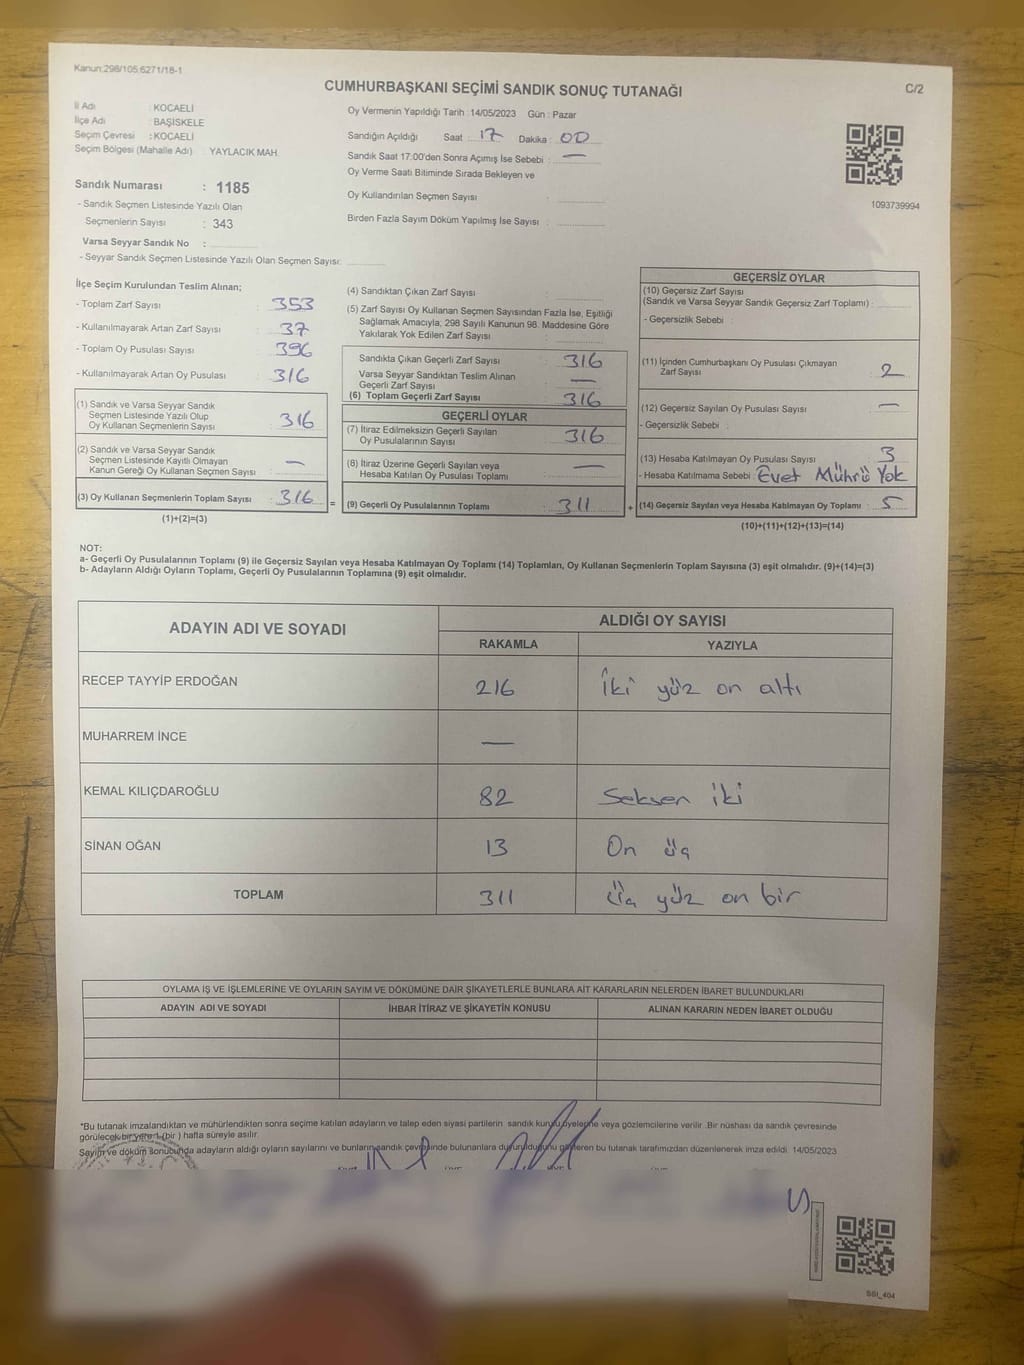 Kanun:298/105,6271/18-1
CUMHURBAŞKANI SEÇİMİ SANDIK SONUÇ TUTANAĞI
C/2
İl Adı : KOCAELİ
İlçe Adı : BAŞİSKELE
Seçim Çevresi : KOCAELİ
Seçim Bölgesi (Mahalle Adı) : YAYLACIK MAH.
Sandık Numarası : 1185
- Sandık Seçmen Listesinde Yazılı Olan
Seçmenlerin Sayısı : 343
Varsa Seyyar Sandık No :
- Seyyar Sandık Seçmen Listesinde Yazılı Olan Seçmen Sayısı:
Oy Vermenin Yapıldığı Tarih :14/05/2023 Gün : Pazar
Sandığın Açıldığı Saat : 17 Dakika : 00
Sandık Saat 17:00'den Sonra Açımış İse Sebebi : —
Oy Verme Saati Bitiminde Sırada Bekleyen ve
Oy Kullandırılan Seçmen Sayısı :
Birden Fazla Sayım Döküm Yapılmış İse Sayısı :
1093739994
İlçe Seçim Kurulundan Teslim Alınan;
- Toplam Zarf Sayısı : 353
- Kullanılmayarak Artan Zarf Sayısı : 37
- Toplam Oy Pusulası Sayısı : 396
- Kullanılmayarak Artan Oy Pusulası : 316
(1) Sandık ve Varsa Seyyar Sandık
Seçmen Listesinde Yazılı Olup
Oy Kullanan Seçmenlerin Sayısı : 316
(2) Sandık ve Varsa Seyyar Sandık
Seçmen Listesinde Kayıtlı Olmayan
Kanun Gereği Oy Kullanan Seçmen Sayısı : —
(3) Oy Kullanan Seçmenlerin Toplam Sayısı : 316 =
(1)+(2)=(3)
(4) Sandıktan Çıkan Zarf Sayısı :
(5) Zarf Sayısı Oy Kullanan Seçmen Sayısından Fazla İse, Eşitliği
Sağlamak Amacıyla; 298 Sayılı Kanunun 98. Maddesine Göre
Yakılarak Yok Edilen Zarf Sayısı :
Sandıkta Çıkan Geçerli Zarf Sayısı : 316
Varsa Seyyar Sandıktan Teslim Alınan
Geçerli Zarf Sayısı : —
(6) Toplam Geçerli Zarf Sayısı : 316
GEÇERLİ OYLAR
(7) İtiraz Edilmeksizin Geçerli Sayılan
Oy Pusulalarının Sayısı : 316
(8) İtiraz Üzerine Geçerli Sayılan veya
Hesaba Katılan Oy Pusulası Toplamı : —
(9) Geçerli Oy Pusulalarının Toplamı : 311 +
GEÇERSİZ OYLAR
(10) Geçersiz Zarf Sayısı
(Sandık ve Varsa Seyyar Sandık Geçersiz Zarf Toplamı) :
- Geçersizlik Sebebi :
(11) İçinden Cumhurbaşkanı Oy Pusulası Çıkmayan
Zarf Sayısı : 2
(12) Geçersiz Sayılan Oy Pusulası Sayısı : —
- Geçersizlik Sebebi :
(13) Hesaba Katılmayan Oy Pusulası Sayısı : 3
- Hesaba Katılmama Sebebi : Evet Mührü Yok
(14) Geçersiz Sayılan veya Hesaba Katılmayan Oy Toplamı : 5
(10)+(11)+(12)+(13)=(14)
NOT:
a- Geçerli Oy Pusulalarının Toplamı (9) ile Geçersiz Sayılan veya Hesaba Katılmayan Oy Toplamı (14) Toplamları, Oy Kullanan Seçmenlerin Toplam Sayısına (3) eşit olmalıdır. (9)+(14)=(3)
b- Adayların Aldığı Oyların Toplamı, Geçerli Oy Pusulalarının Toplamına (9) eşit olmalıdır.
ADAYIN ADI VE SOYADI
ALDIĞI OY SAYISI
RAKAMLA YAZIYLA
RECEP TAYYİP ERDOĞAN 216 İki yüz on altı
MUHARREM İNCE —
KEMAL KILIÇDAROĞLU 82 Seksen iki
SİNAN OĞAN 13 On üç
TOPLAM 311 Üç yüz on bir
OYLAMA İŞ VE İŞLEMLERİNE VE OYLARIN SAYIM VE DÖKÜMÜNE DAİR ŞİKAYETLERLE BUNLARA AİT KARARLARIN NELERDEN İBARET BULUNDUKLARI
ADAYIN ADI VE SOYADI İHBAR İTİRAZ VE ŞİKAYETİN KONUSU ALINAN KARARIN NEDEN İBARET OLDUĞU
*Bu tutanak imzalandıktan ve mühürlendikten sonra seçime katılan adayların ve talep eden siyasi partilerin sandık kurulu üyelerine veya gözlemcilerine verilir. Bir nüshası da sandık çevresinde
görülecek bir yere 1 (bir ) hafta süreyle asılır.
Sayım ve döküm sonucunda adayların aldığı oyların sayılarını ve bunların sandık çevresinde bulunanlara duyurulduğunu gösteren bu tutanak tarafımızdan düzenlenerek imza edildi. 14/05/2023
SSI_404